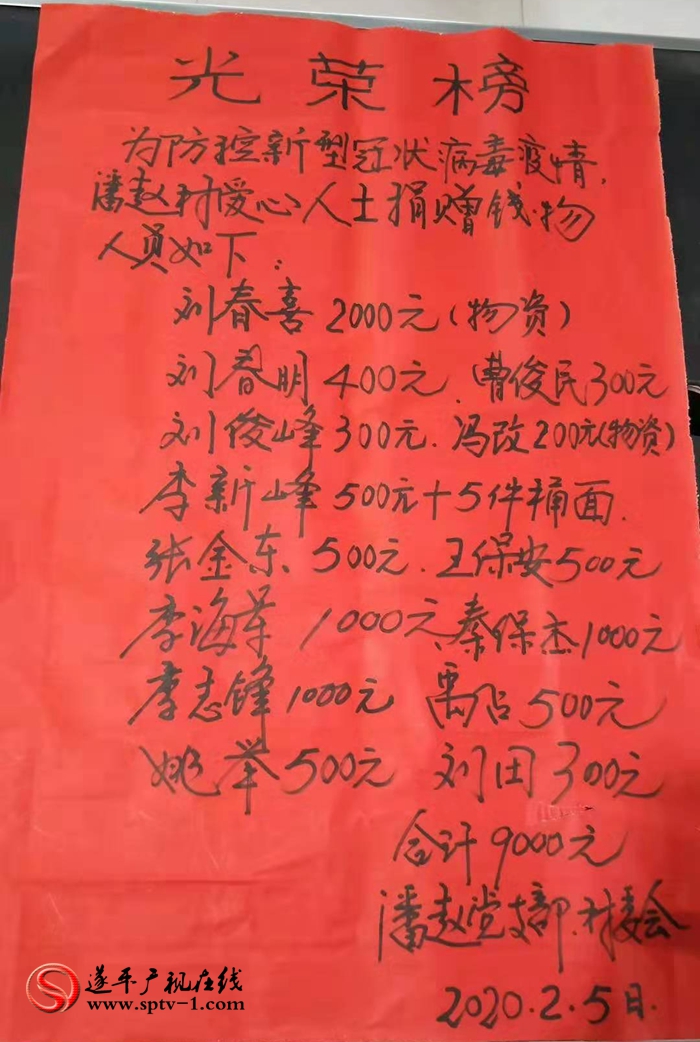 光荣榜
为防控新型冠状病毒疫情,
潘赵村爱心人士捐赠钱物
人员如下:
刘春喜2000元(物资)
刘春明400元.曹俊民300元
刘俊峰300元.冯改200元(物资)
李新峰500元+5件桶面.
张金东500元.王保安500元
李海军1000元秦保杰1000元
李志锋1000元 禹占500元
姚举500元 刘田300元
合计9000元
潘赵党支部.村委会
2020.2.5日.
遂平广视在线
www.sptv-1.com